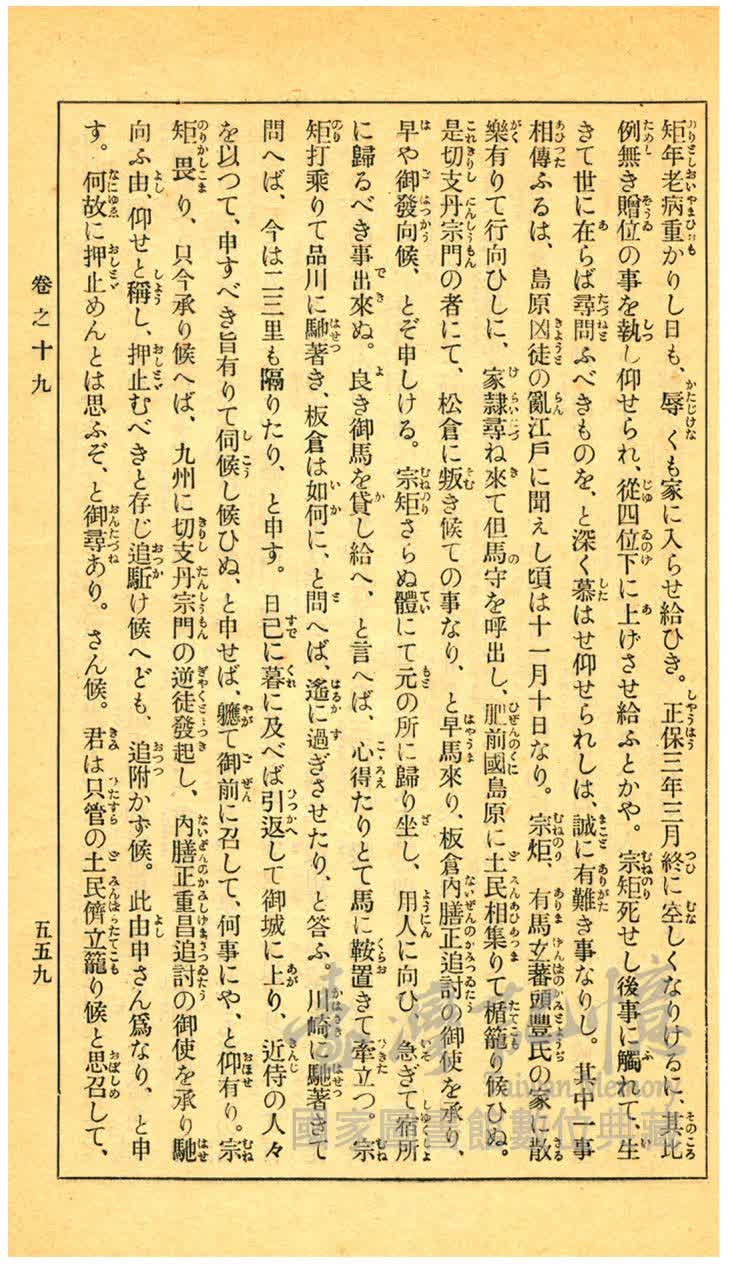 矩年老病重かりし日も、辱くも家に入らせ給ひき。正保三年三月終に空しくなりけるに、其比
例無き贈位の事を執し仰せられ、從四位下に上げさせ給ふとかや。宗矩死せし後事に觸れて、生
きて世に在らば尋問ふべきものを、と深く慕はせ仰せられしは、誠に有難き事なりし。其中一事
相傳ふるは、島原凶徒の亂江戸に聞えし頃は十一月十日なり。宗炬、有馬玄蕃頭豐氏の家に散
樂有りて行向ひしに、家隷尋ね來て但馬守を呼出し、肥前國島原に土民相集りて楯籠り候ひぬ。
是切支丹宗門の者にて、松倉に叛き候ての事なり、と早馬來り、板倉内膳正追討の御使を承り、
早や御發向候、とぞ申しける。宗矩さらぬ體にて元の所に歸り坐し、用人に向ひ、急ぎて宿所
に歸るべき事出來ぬ。良き御馬を貸し給へ、と言へば、心得たりとて馬に鞍置きて牽立つ。宗
矩打乘りて品川に馳著き、板倉は如何に、と問へば、遙に過ぎさせたり、と答ふ。川崎に馳著きて
問へば、今は二三里も隔りたり、と申す。日已に暮に及べば引返して御城に上り、近侍の人々
を以つて、申すべき旨有りて伺候し候ひぬ、と申せば、軈て御前に召して、何事にや、と仰有り。宗
矩畏り、只今承り候へば、九州に切支丹宗門の逆徒發起し、内膳正重昌追討の御使を承り馳
向ふ由、仰せと稱し、押止むべきと存じ追駈け候へども、追附かず候。此由申さん爲なり、と申
す。何故に押止めんとは思ふぞ、と御尋あり。さん候。君は只管の土民儕立籠り候と思召して、
卷之十九
五五九
臺灣記憶
Taiwan Memory
國家圖書館數位典藏